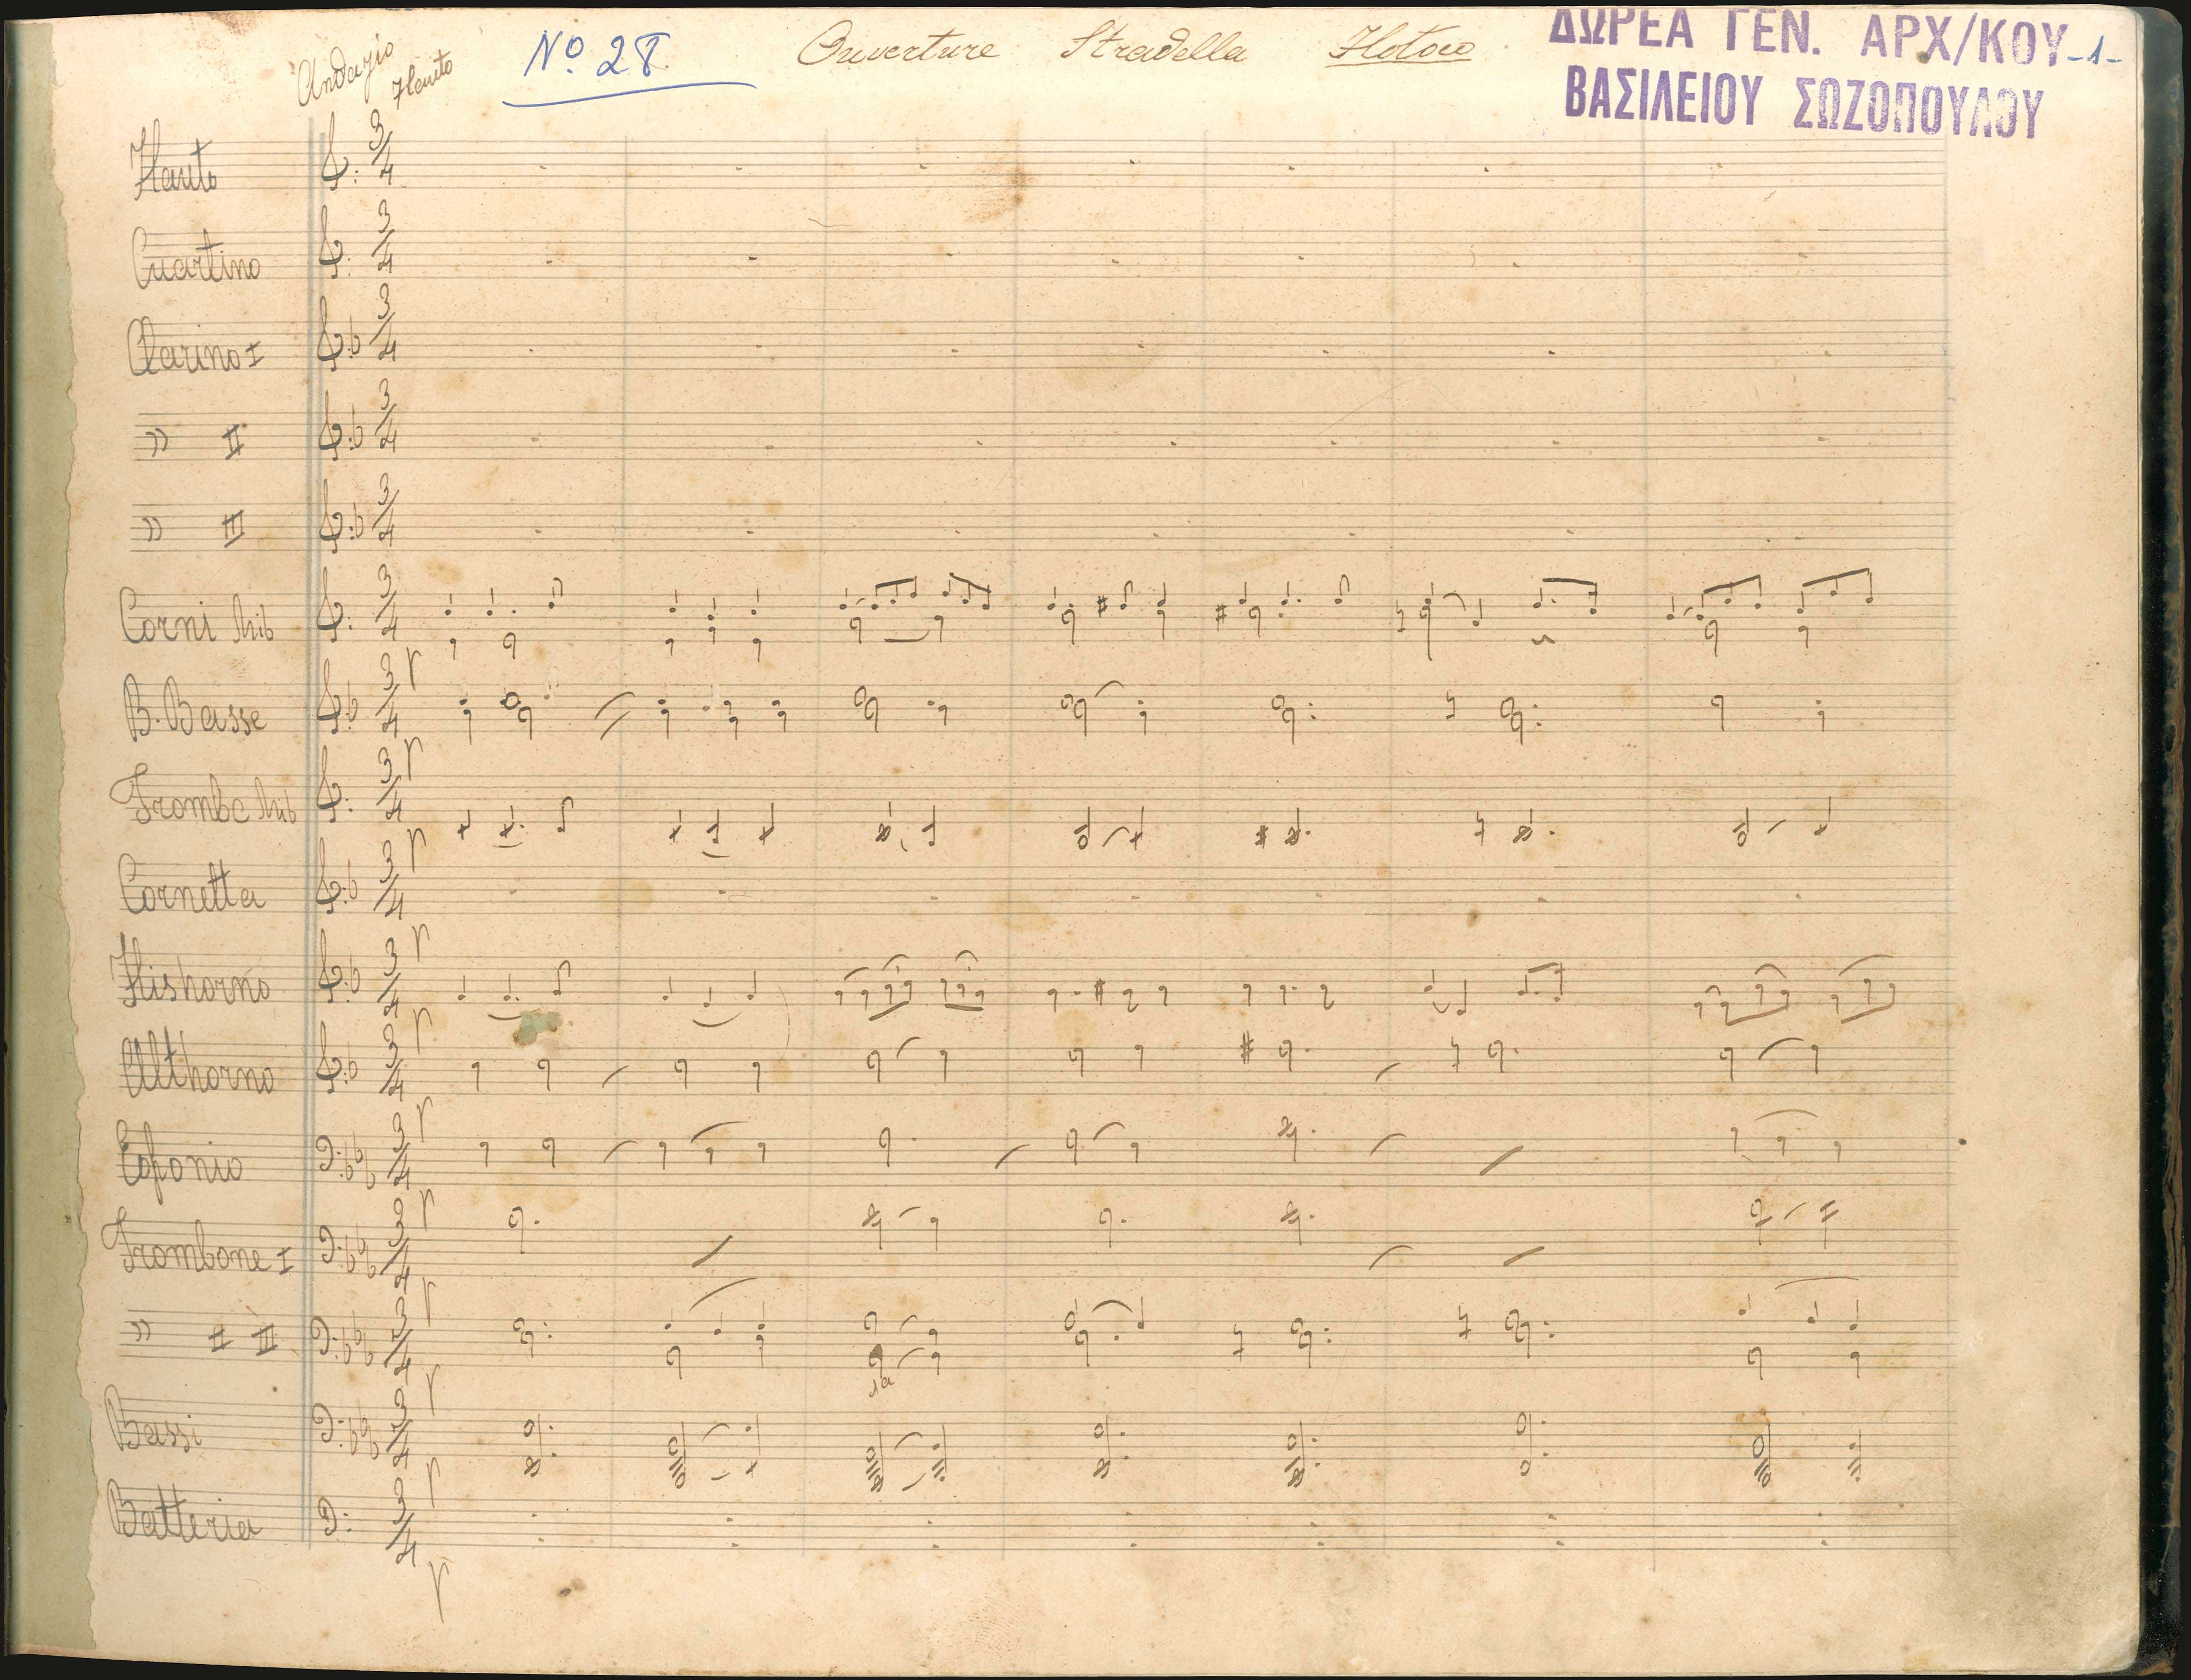 Andagio
Flauto
No. 28
Ouverture Stradella Flotow
ΔΩΡΕΑ ΓΕΝ. ΑΡΧ/ΚΟΥ -1-
ΒΑΣΙΛΕΙΟΥ ΣΩΖΟΠΟΥΛΟΥ
Flauto 3/4
Cuartino 3/4
Clarino I 3/4
» II 3/4
» III 3/4
Corni Mib 3/4
B. Basse 3/4
Trombe Mib 3/4
Cornetta 3/4
Flishorno 3/4
Althorno 3/4
Eofonio 3/4
Trombone I 3/4
» II III 3/4
Bassi 3/4
Batteria 3/4